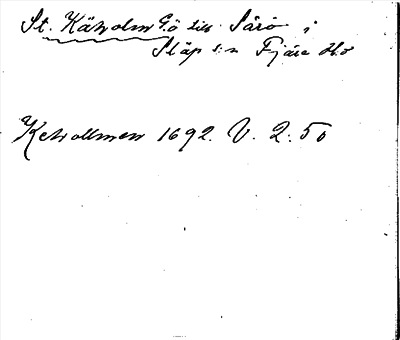 St. Kätholm G:ö till Särö i
Släp s:n Fjäre Hd
Ketollmen 1692. V. 2:50